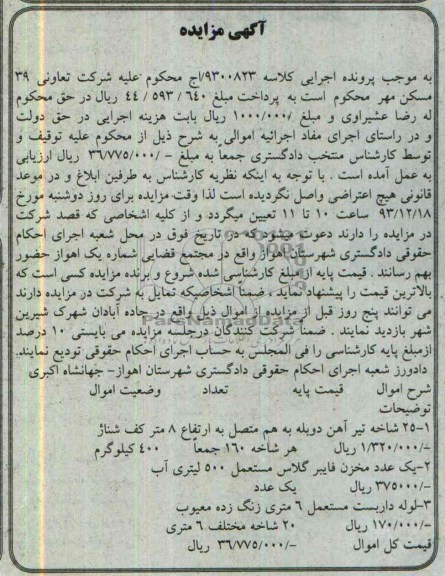 آگهی مزایده
به موجب پرونده اجرایی کلاسه ۹۳۰۰۸۲۳/اج محکوم علیه شرکت تعاونی ۳۹
مسکن مهر محکوم است به پرداخت مبلغ ۴۴/۵۹۳/۶۴۰ ریال در حق محکوم
له رضا عشیراوی و مبلغ ۱۰۰۰/۰۰۰/ ریال بابت هزینه اجرایی در حق دولت
و در راستای اجرای مفاد اجرائیه اموالی به شرح ذیل از محکوم علیه توقیف و
توسط کارشناس منتخب دادگستری جمعاً به مبلغ -/۳۶/۷۷۵/۰۰۰ ریال ارزیابی
به عمل آمده است . با توجه به اینکه نظریه کارشناس به طرفین ابلاغ و در موعد
قانونی هیچ اعتراضی واصل نگردیده است لذا وقت مزایده برای روز دوشنبه مورخ
۹۳/۱۲/۱۸ ساعت ۱۰ تا ۱۱ تعیین میگردد و از کلیه اشخاصی که قصد شرکت
در مزایده را دارند دعوت میشود که در تاریخ فوق در محل شعبه اجرای احکام
حقوقی دادگستری شهرستان اهواز واقع در مجتمع قضایی شماره یک اهواز حضور
بهم رسانند . قیمت پایه از مبلغ کارشناسی شده شروع و برنده مزایده کسی است که
بالاترین قیمت را پیشنهاد نماید ، ضمناً اشخاصیکه تمایل به شرکت در مزایده دارند
می توانند پنج روز قبل از مزایده از اموال ذیل واقع در جاده آبادان شهرک شیرین
شهر بازدید نمایند . ضمنا شرکت کنندگان درجلسه مزایده می بایستی ۱۰ درصد
ازمبلغ پایه کارشناسی را فی المجلس به حساب اجرای احکام حقوقی تودیع نمایند.
دادورز شعبه اجرای احکام حقوقی دادگستری شهرستان اهواز- جهانشاه اکبری
شرح اموال قیمت پایه تعداد وضعیت اموال
توضیحات
۱-۲۵ شاخه تیر آهن دوبله به هم متصل به ارتفاع ۸ متر کف شناژ
-/۱/۳۲۰/۰۰۰ ریال هر شاخه ۱۶۰ جمعاً ۴۰۰ کیلوگرم
۲-یک عدد مخزن فایبر گلاس مستعمل ۵۰۰ لیتری آب
-/۳۷۵۰۰۰ ریال یک عدد
۳-لوله داربست مستعمل ۶ متری زنگ زده معیوب
-/۱۷۰/۰۰۰ ریال ۲۰ شاخه مختلف ۶ متری
قیمت کل اموال -/۳۶/۷۷۵/۰۰۰ ریال